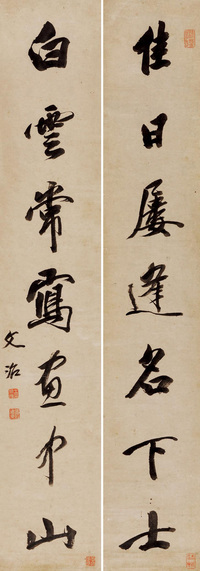 佳日屡逢名下士
白雲常寫畫中山
文治